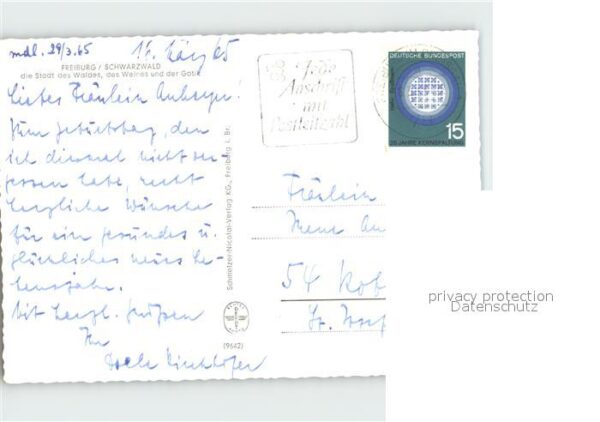 mdl. 29/3.65
16. März 65
FREIBURG / SCHWARZWALD
die Stadt des Waldes, des Weines und der Gotik
Liebes Fräulein
Zum Geburtstag, den
ich diesmal nicht ver-
gessen habe, recht
herzliche Wünsche
für ein gesundes u.
glückliches neues Le-
bensjahr.
Mit herzl. Grüßen
Ihr
Schmelzer-Nicolai-Verlag KG., Freiburg i. Br.
(9642)
Jede
Anschrift
mit
Postleitzahl
DEUTSCHE BUNDESPOST
15
25 JAHRE KERNSPALTUNG
Fräulein
54
privacy protection
Datenschutz